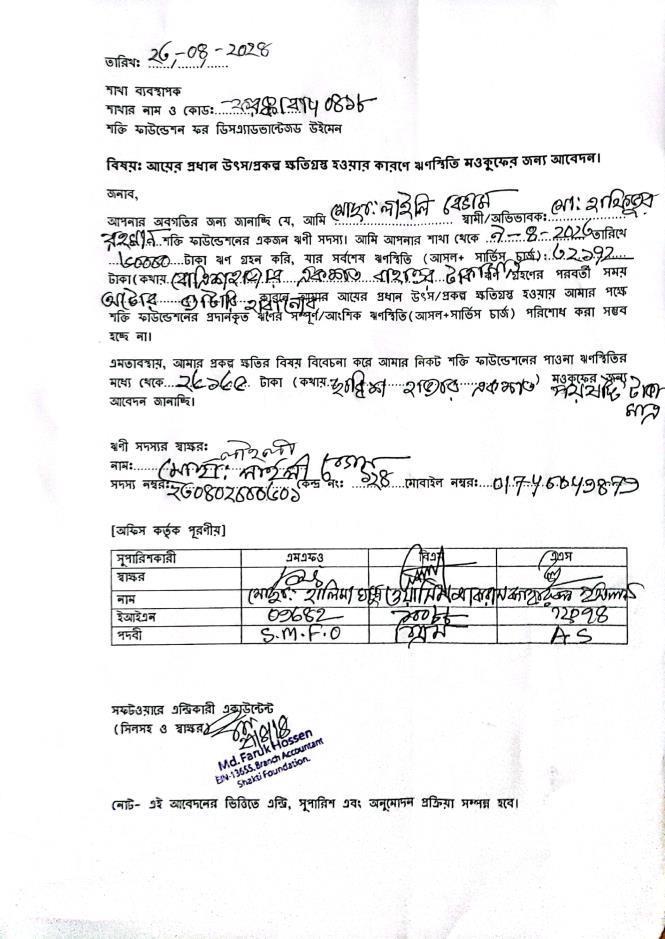 তারিখ: ২৬-০৪-২০২৪
শাখা ব্যবস্থাপক
শাখার নাম ও কোড:
শক্তি ফাউন্ডেশন ফর ডিসএ্যাডভান্টেজড উইমেন
বিষয়: আয়ের প্রধান উৎস/প্রকল্প ক্ষতিগ্রস্ত হওয়ার কারণে ঋণস্থিতি মওকুফের জন্য আবেদন।
জনাব,
আপনার অবগতির জন্য জানাচ্ছি যে, আমি মোছা: লাইলি বেগম স্বামী/অভিভাবক: মো:
রহমান শক্তি ফাউন্ডেশনের একজন ঋণী সদস্য। আমি আপনার শাখা থেকে তারিখে
৬০০০০ টাকা ঋণ গ্রহন করি, যার সর্বশেষ ঋণস্থিতি (আসল+ সার্ভিস চার্জ):
টাকা (কথায় একশত বাহাত্তর টাকা) ঋণ গ্রহণের পরবর্তী সময়
অটোর ব্যাটারি হারানোর কারনে আমার আয়ের প্রধান উৎস/প্রকল্প ক্ষতিগ্রস্ত হওয়ায় আমার পক্ষে
শক্তি ফাউন্ডেশনের প্রদানকৃত ঋণের সম্পূর্ণ/আংশিক ঋণস্থিতি(আসল+সার্ভিস চার্জ) পরিশোধ করা সম্ভব
হচ্ছে না।
এমতাবস্থায়, আমার প্রকল্প ক্ষতির বিষয় বিবেচনা করে আমার নিকট শক্তি ফাউন্ডেশনের পাওনা ঋণস্থিতির
মধ্যে থেকে টাকা (কথায় হাজার একশত পয়ষট্টি টাকা মাত্র) মওকুফের জন্য
আবেদন জানাচ্ছি।
ঋণী সদস্যর স্বাক্ষর: লাইলী
নাম: মোছা: লাইলী বেগম
সদস্য নম্বর: কেন্দ্র নং: ১২৪ মোবাইল নম্বর:
[অফিস কর্তৃক পূরণীয়]
সুপারিশকারী এমএফও বিএম এএস
স্বাক্ষর
নাম মোছা: হালিমা
ইআইএন 09682
পদবী S.M.F.O বিএম A S
সফটওয়ারে এন্ট্রিকারী একাউন্টেন্ট
(সিলসহ ও স্বাক্ষর)
Md. Faruk Hossen
EIN-13655, Branch Accountant
Shakti Foundation.
নোট- এই আবেদনের ভিত্তিতে এন্ট্রি, সুপারিশ এবং অনুমোদন প্রক্রিয়া সম্পন্ন হবে।